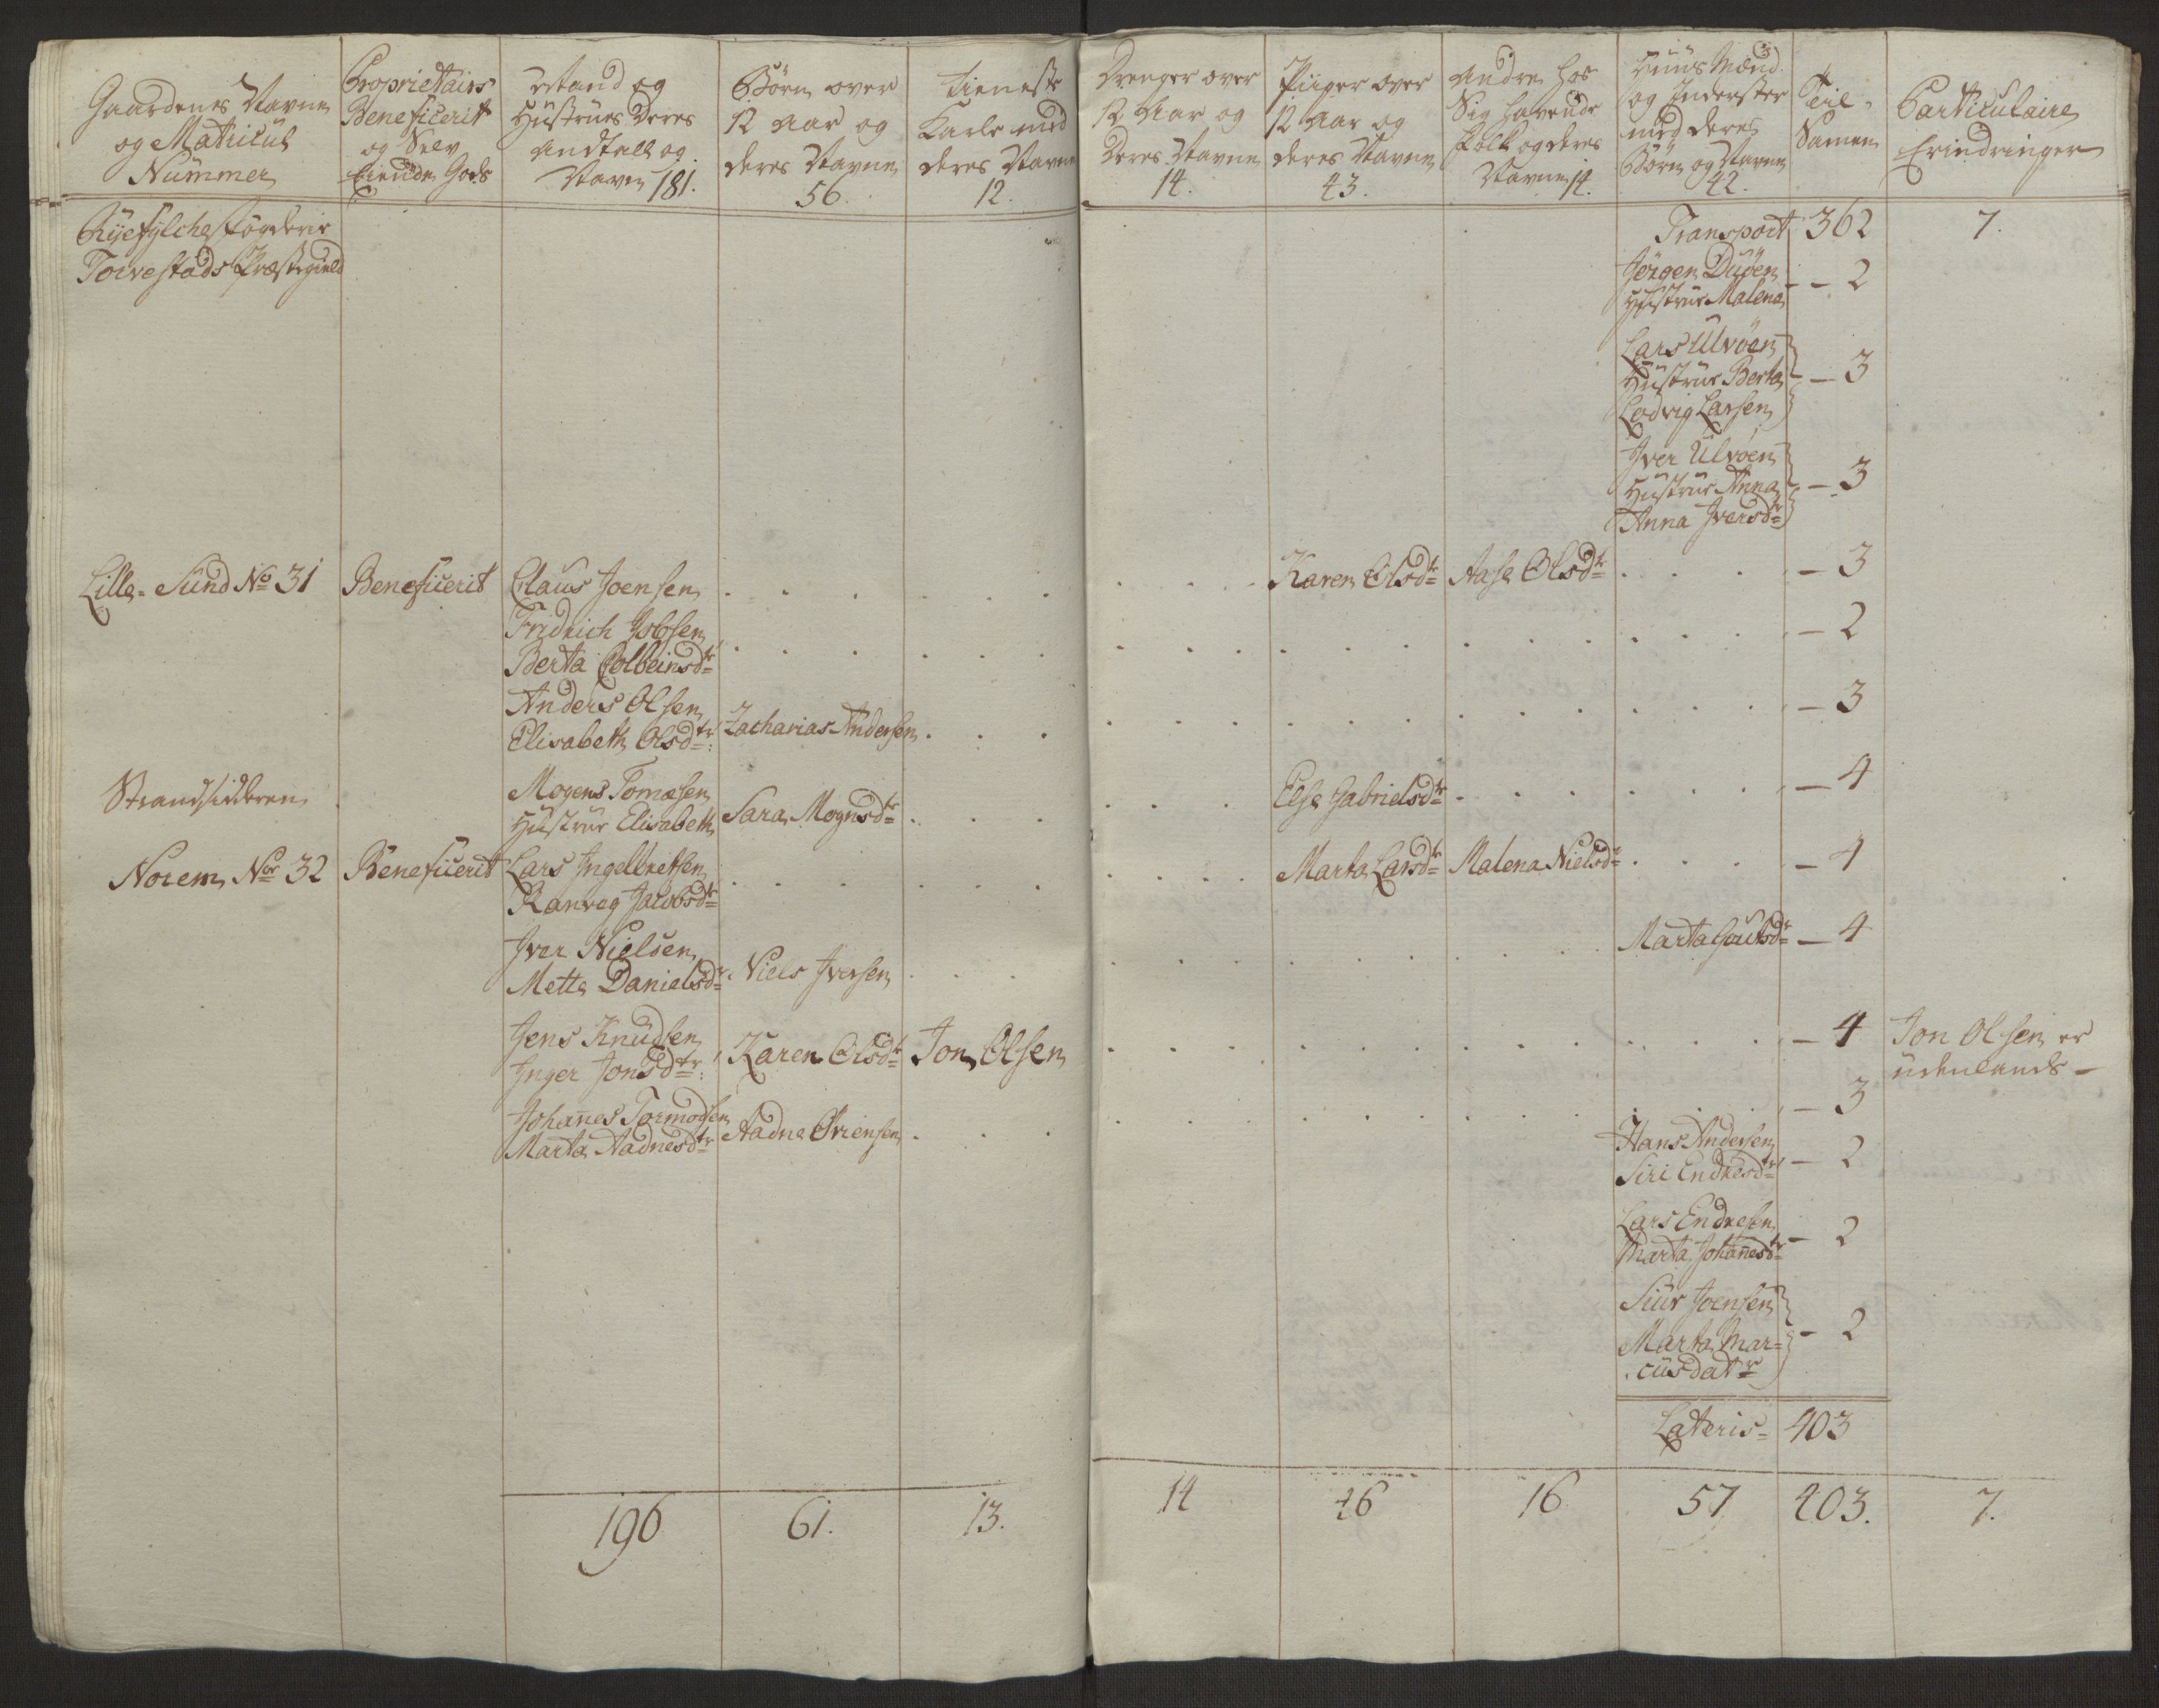 Gaardenes Navne
og Matricul
Nummer
Proprietairs
Beneficerit
og Selv
Eiende Gods
Stand og
Hustrues Deres
Andtall og
Navne 181.
Børn over
12 Aar og
deres Navne
56.
Tieneste
Karle med
deres Navne
12.
Drenger over
12 Aar og
Deres Navne
14.
Piiger over
12 Aar og
deres Navne
43.
Andre hos
Sig havende
folk og deres
Navne 14.
Huus Mænd
og Inderster
med deres
Børn og Navne
42.
Til-
Samen
Particulaire
Erindringer
Ryefylche fogderie
Torvestads Præstegield
Transport 362 7.
Jörgen Duöen
Hustrue Malena – 2
Lars Ulvöen
Hustrue Berta – 3
Lodvig Larsen
Iver Ulvöen
Hustrue Anna – 3
Anna Iversdtr
Lille-Sund No 31 Beneficerit Claus Joensen Karen Olsdtr Aase Olsdtr – 3
Fridrich Ibsen
Berta Colbeinsdtr – 2
Anders Olsen
Elisabeth Olsdtr: Zacharias Andersen – 3
Strandsidderen Mogens Tomæsen
Hustrue Elisabeth Sara Mognsdtr Else Gabrielsdtr – 4
Norem Nor 32 Beneficerit Lars Ingelbretsen Marta Larsdtr Malena Nielsdr – 4
Ranveg Jacobsdtr
Iver Nielsen
Mette Danielsdr Niels Iversen Marta Gautsdr – 4
Jens Knudsen
Inger Jonsdtr: Karen Olsdtr Jon Olsen – 4 Jon Olsen er
udenlands –
Johanes Tormodsen
Marta Aadnesdtr Aadne Driensen – 3
Hans Andersen
Siri Endresdtr – 2
Lars Endresen
Marta Johanesdtr – 2
Siur Joensen
Marta Mar=
cusdatr – 2
Lateris – 403
196 61. 13. 14 46 16 57 403. 7.